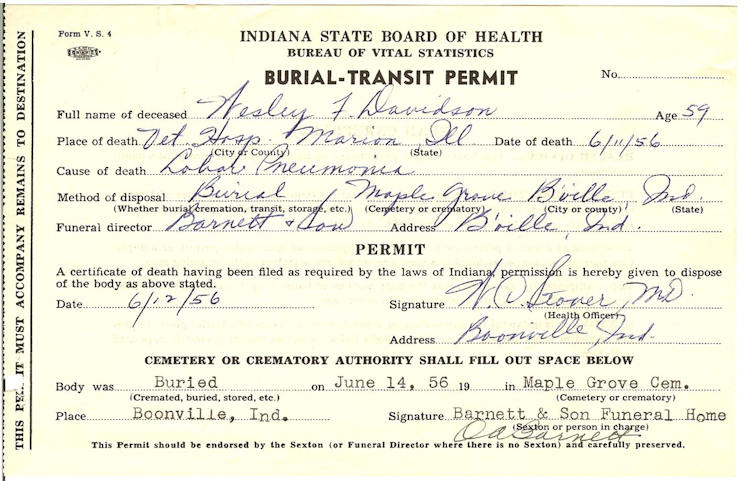 Form V. S. 4
INDIANA STATE BOARD OF HEALTH
BUREAU OF VITAL STATISTICS
BURIAL-TRANSIT PERMIT
No.
Full name of deceased Wesley F Davidson Age 59
Place of death Vet. Hosp. Marion, Ill Date of death 6/11/56
(City or County) (State)
Cause of death Lobar Pneumonia
Method of disposal Burial Maple Grove B'ville, Ind.
(Whether burial, cremation, transit, storage, etc.) (Cemetery or crematory) (City or county) (State)
Funeral director Barnett & Son Address B'ville, Ind.
PERMIT
A certificate of death having been filed as required by the laws of Indiana, permission is hereby given to dispose
of the body as above stated.
Date 6/12/56 Signature W. O. Stover, MD.
(Health Officer)
Address Boonville, Ind.
CEMETERY OR CREMATORY AUTHORITY SHALL FILL OUT SPACE BELOW
Body was Buried on June 14, 56 19 in Maple Grove Cem.
(Cremated, buried, stored, etc.) (Cemetery or crematory)
Place Boonville, Ind. Signature Barnett & Son Funeral Home
(Sexton or person in charge)
O A Barnett
This Permit should be endorsed by the Sexton (or Funeral Director where there is no Sexton) and carefully preserved.
THIS PERMIT MUST ACCOMPANY REMAINS TO DESTINATION